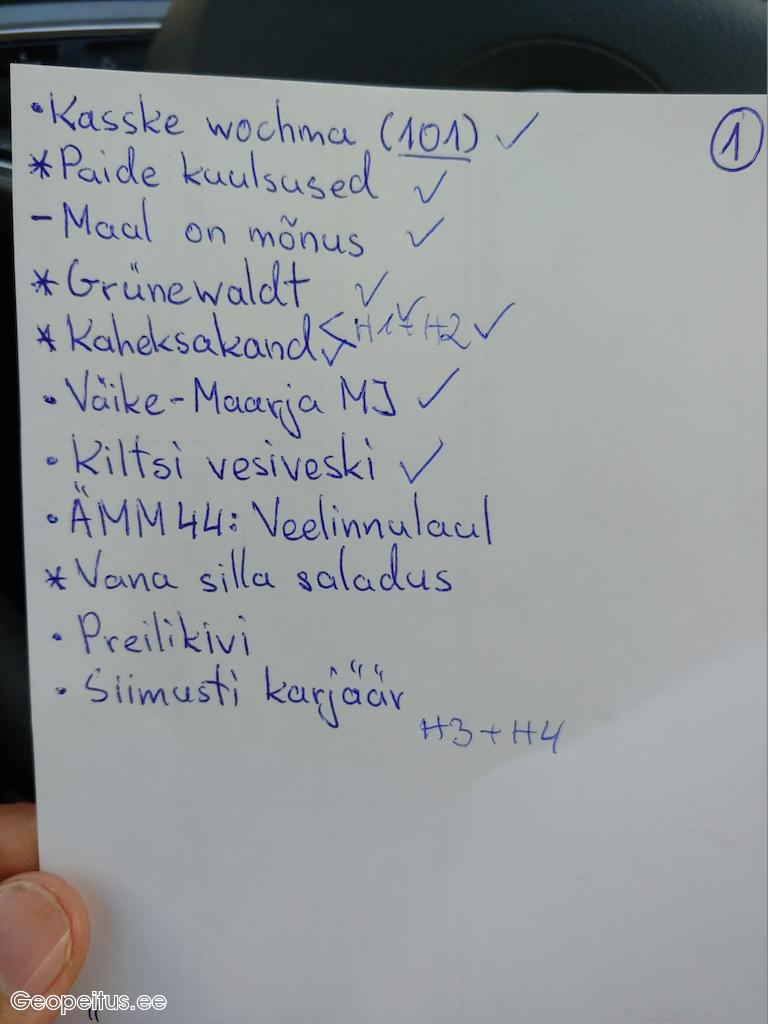 • Kasske wochma (101) ✓
①
* Paide kuulsused ✓
- Maal on mõnus ✓
* Grünewaldt ✓
* Kaheksakand ✓ < H1 ✓ + H2 ✓
• Väike-Maarja MJ ✓
• Kiltsi vesiveski ✓
• ÄMM44: Veelinnulaul
* Vana silla saladus
• Preilikivi
• Siimusti karjäär
H3 + H4
Geopeitus.ee